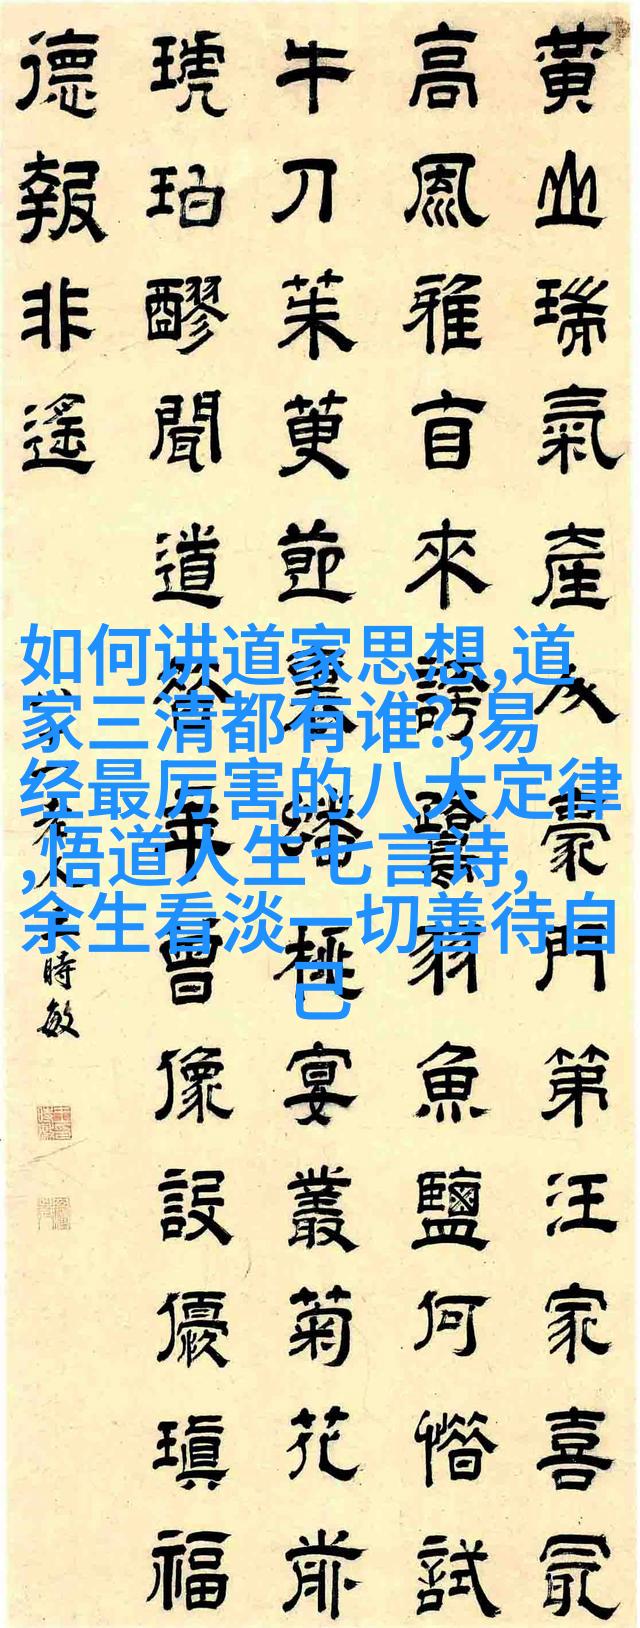 黃山瑞氣產人豪門第汪家喜冣
高風雅來誇鷺魚鹽何惜試
牛刀茱萸節蟠桃宴叢菊花前
琥珀醪聞道年曾像設優瑱福
德報非遙
老人王時敏
如何讲道家思想,道
家三清都有谁?,易
经最厉害的八大定律
,悟道人生七言诗,
余生看淡一切善待自
己